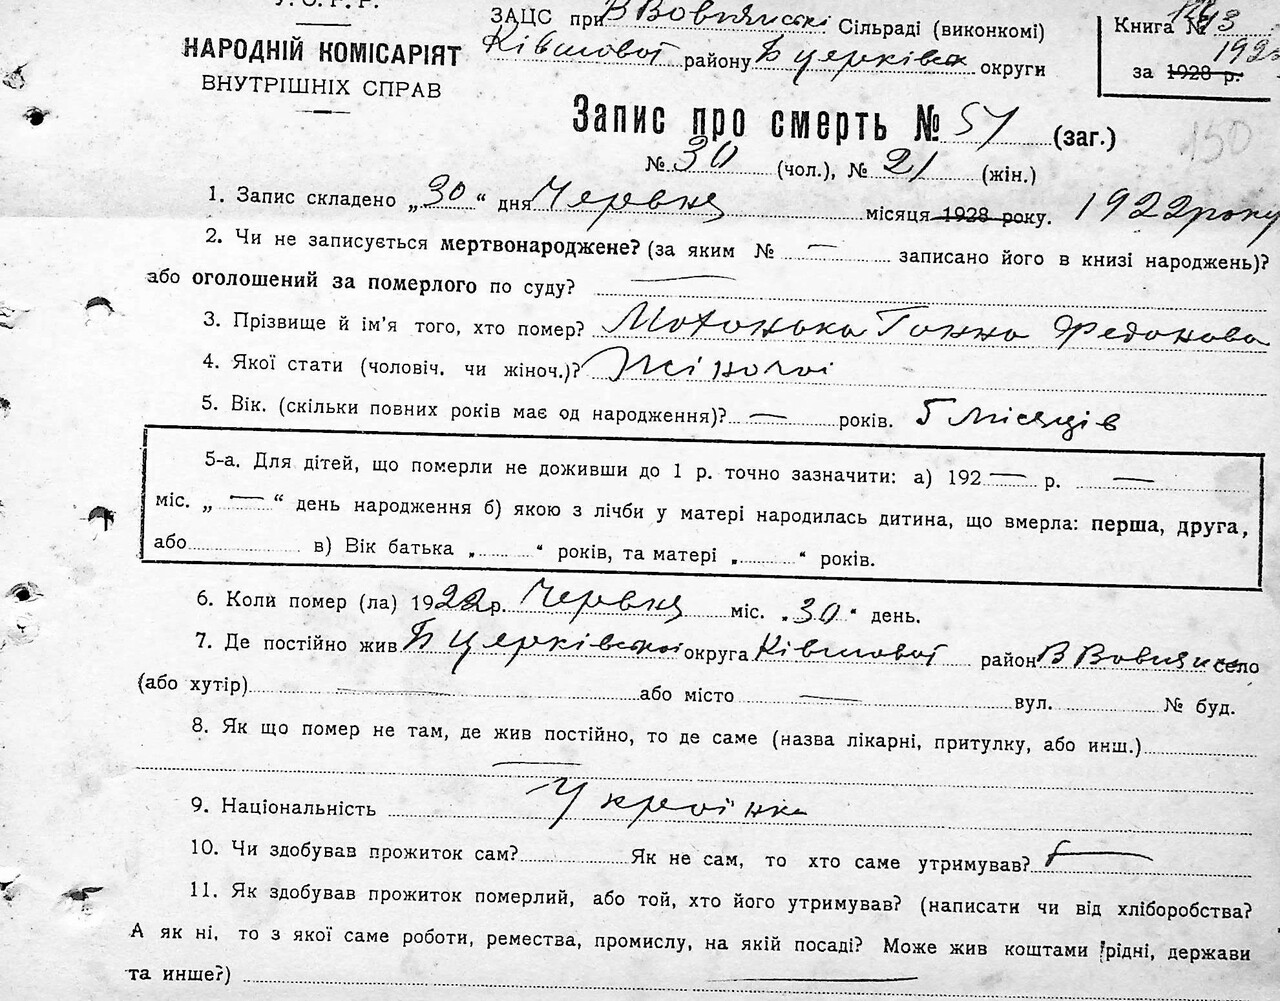 У. С. Р. Р.
НАРОДНІЙ КОМІСАРІЯТ
ВНУТРІШНІХ СПРАВ
ЗАЦС при В Вовнянські Сільраді (виконкомі)
Ківшової району Б церківськ округи
Книга № 3
за 1928 р. 192
Запис про смерть № 51 (заг.)
150
№ 30 (чол.), № 21 (жін.)
1. Запис складено „30“ дня Червня місяця 1928 року. 1922 року
2. Чи не записується мертвонароджене? (за яким № — записано його в книзі народжень)?
або оголошений за померлого по суду? —
3. Прізвище й ім’я того, хто помер? Ганна Федонова
4. Якої стати (чоловіч. чи жіноч.)? Жіночої
5. Вік. (скільки повних років має од народження)? — років. 5 місяців
5-а. Для дітей, що померли не доживши до 1 р. точно зазначити: а) 192 — р. —
міс. „ — “ день народження б) якою з лічби у матері народилась дитина, що вмерла: перша, друга,
або в) Вік батька „ “ років, та матері „ “ років.
6. Коли помер (ла) 1922 р. Червня міс. „30“ день.
7. Де постійно жив Б церківської округа Ківшової район В Вовнянс село
(або хутір) — або місто — вул. № буд.
8. Як що помер не там, де жив постійно, то де саме (назва лікарні, притулку, або инш.)
—
9. Національність Українка
10. Чи здобував прожиток сам? Як не сам, то хто саме утримував? —
11. Як здобував прожиток померлий, або той, хто його утримував? (написати чи від хліборобства?
А як ні, то з якої саме роботи, ремества, промислу, на якій посаді? Може жив коштами рідні, держави
та инше?) —